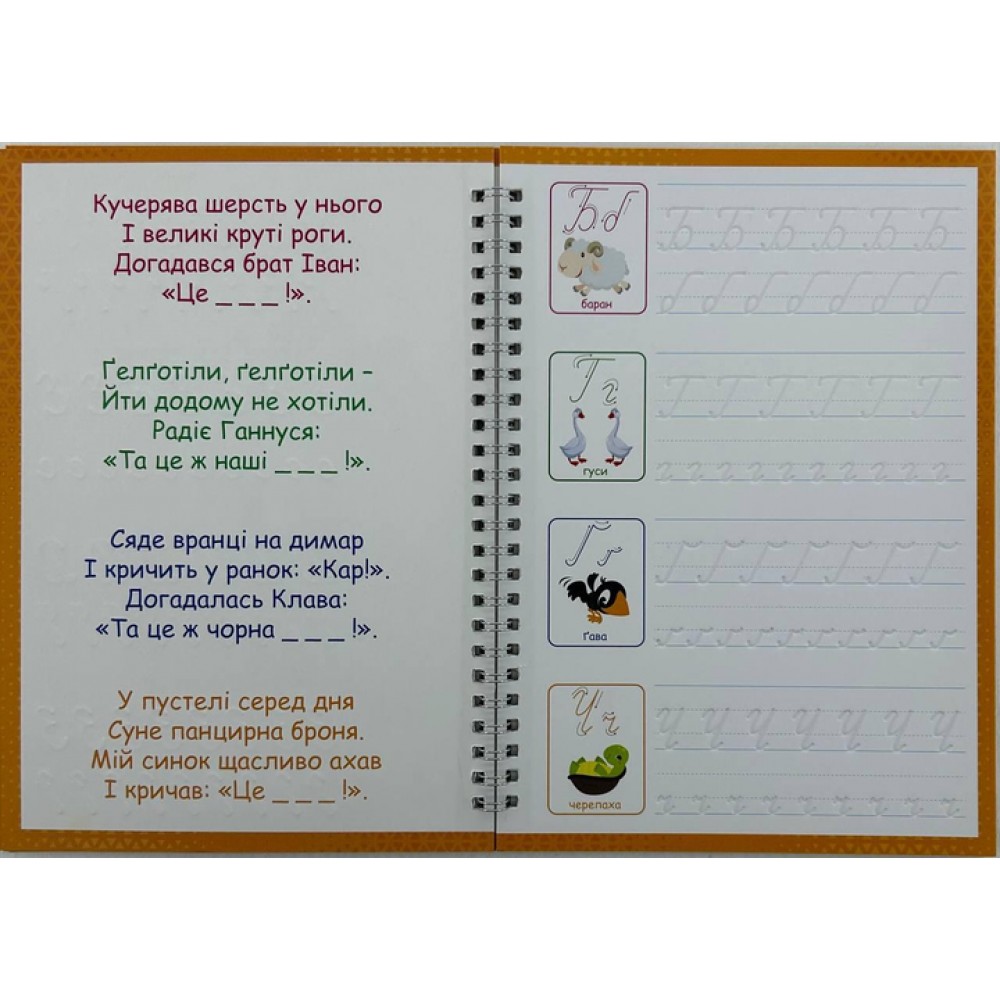 Кучерява шерсть у нього
І великі круті роги.
Догадався брат Іван:
«Це _ _ _ !».
Ґелґотіли, ґелґотіли –
Йти додому не хотіли.
Радіє Ганнуся:
«Та це ж наші _ _ _ !».
Сяде вранці на димар
І кричить у ранок: «Кар!».
Догадалась Клава:
«Та це ж чорна _ _ _ !».
У пустелі серед дня
Суне панцирна броня.
Мій синок щасливо ахав
І кричав: «Це _ _ _ !».
Б б
баран
Б Б Б Б Б Б Б
б б б б б б б
Г г
гуси
Г Г Г Г Г Г Г
г г г г г г г г г г
Ґ ґ
ґава
Ґ Ґ Ґ Ґ Ґ Ґ Ґ
ґ ґ ґ ґ ґ ґ ґ ґ ґ ґ
Ч ч
черепаха
Ч Ч Ч Ч Ч Ч Ч
ч ч ч ч ч ч ч ч